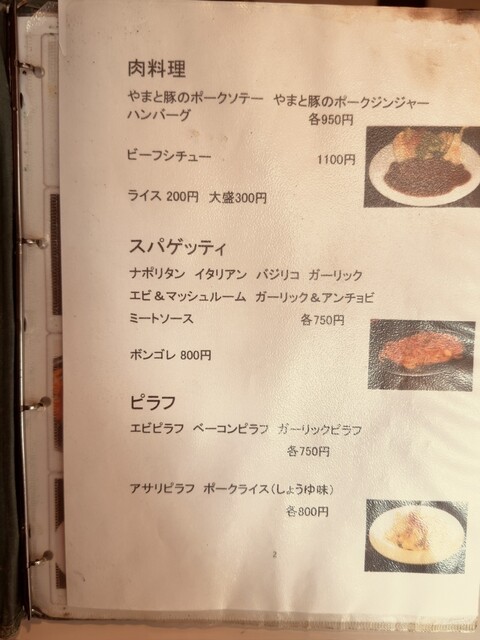 肉料理
やまと豚のポークソテー　やまと豚のポークジンジャー
ハンバーグ　各950円
ビーフシチュー　1100円
ライス 200円　大盛300円
スパゲッティ
ナポリタン　イタリアン　バジリコ　ガーリック
エビ＆マッシュルーム　ガーリック＆アンチョビ
ミートソース　各750円
ボンゴレ 800円
ピラフ
エビピラフ　ベーコンピラフ　ガーリックピラフ
各750円
アサリピラフ　ポークライス（しょうゆ味）
各800円
2